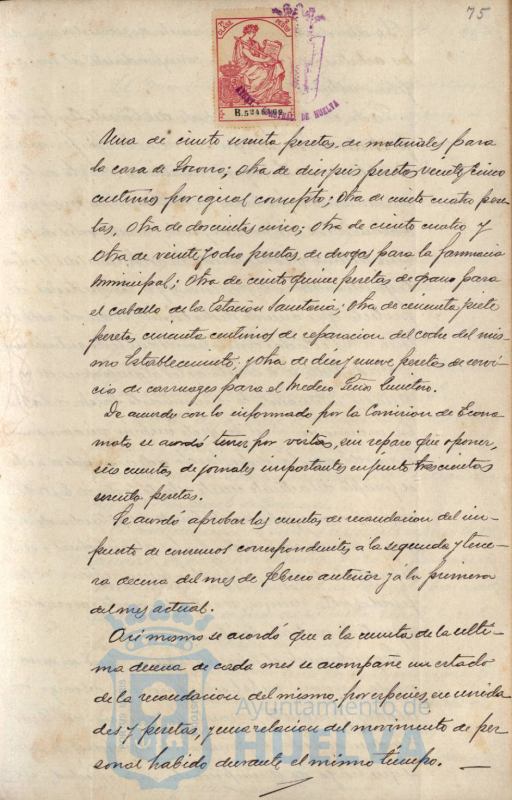 75
CLASE
B.5246,162
DE HUELVA
Una de ciento sesenta pesetas, de materiales para
la casa de Socorro; otra de diez seis pesetas veinte y cinco
centimos por igual concepto; otra de ciento cuatro pese-
tas, otra de doscientas cinco; otra de ciento cuatro y
otra de veinte y ocho pesetas, de drogas para la farmacia
Municipal; otra de ciento quince pesetas de grano para
el caballo de la Estacion Sanitaria; otra de cincuenta y siete
pesetas cincuenta centimos de reparacion del coche del mis-
mo Establecimiento; y otra de diez y nueve pesetas de servi-
cio de carruages para el Medico Señor
De acuerdo con lo informado por la Comision de Econo-
mato se acordó tener por vistas, sin reparo que oponer,
seis cuentas de jornales importantes en junto trescientas
sesenta pesetas.
Se acordó aprobar las cuentas de recaudacion del im-
puesto de consumos correspondientes á la segunda y terce-
ra decena del mes de febrero anterior y á la primera
del mes actual.
Asi mismo se acordó que á la cuenta de la últi-
ma decena de cada mes se acompañe un estado
de la recaudacion del mismo, por especies, en unida-
des y pesetas, y una relacion del movimiento de per-
sonal habido durante el mismo tiempo.
Ayuntamiento de
HUELVA